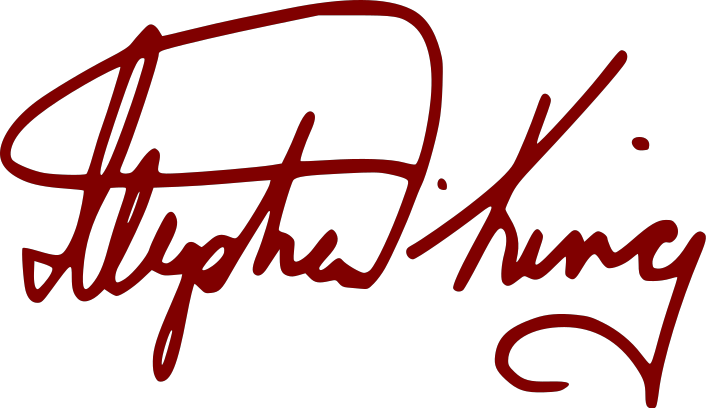 Stephen King